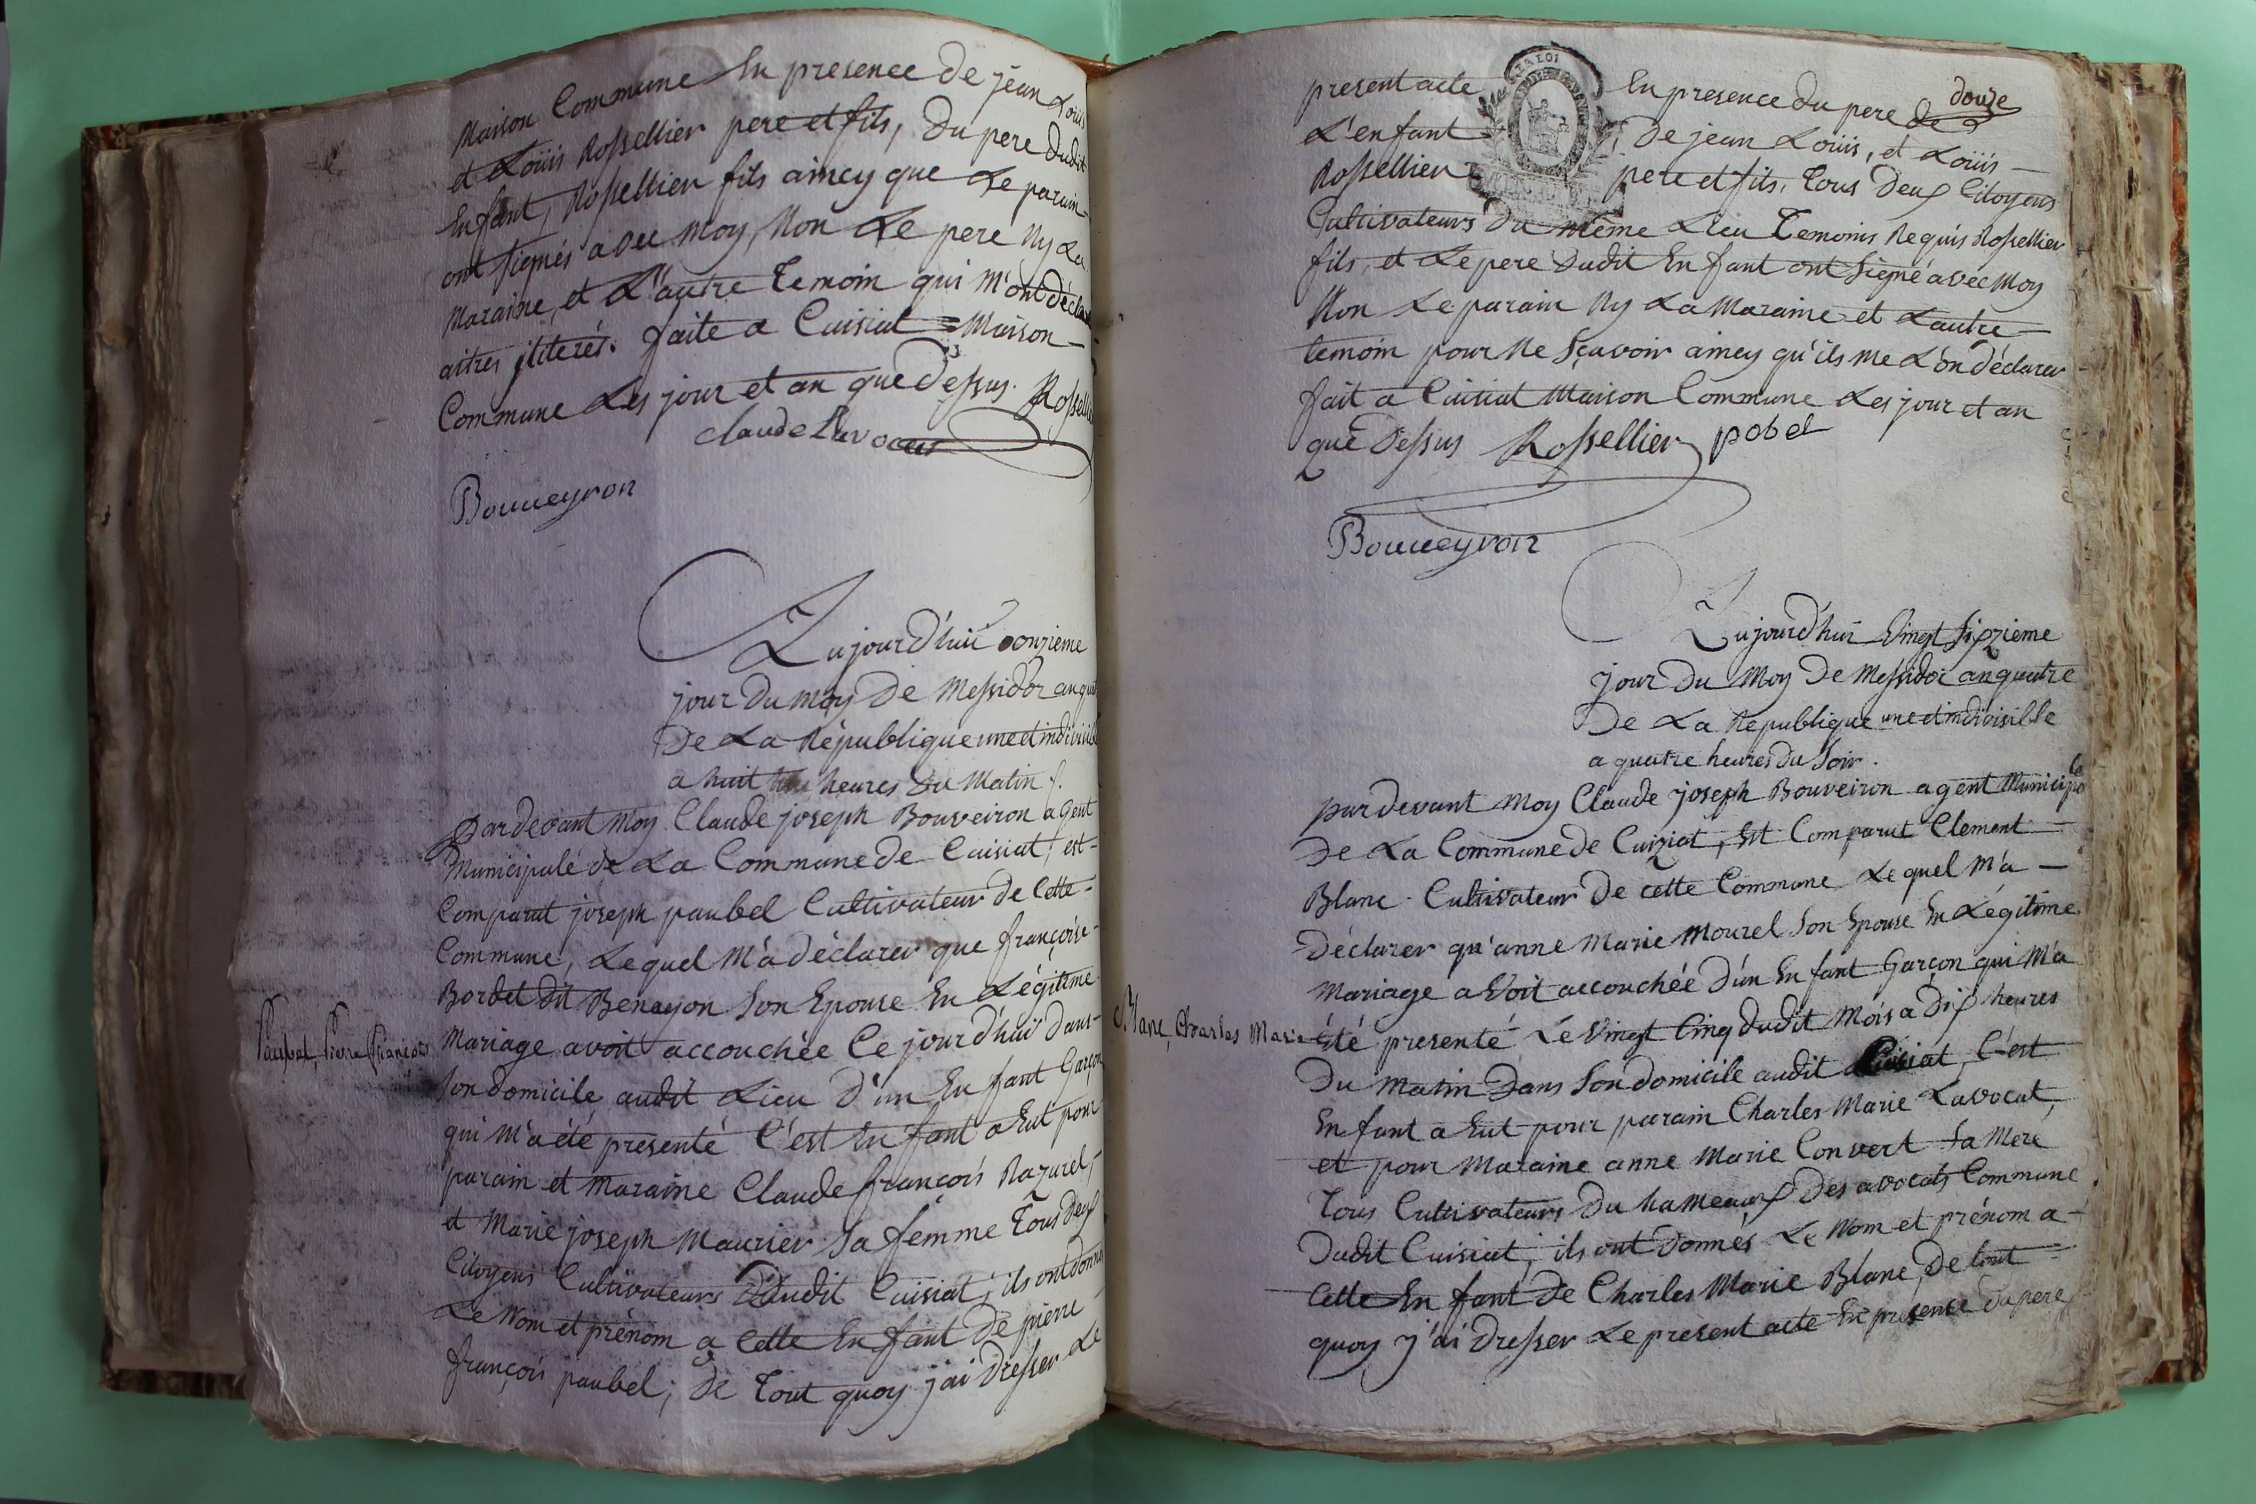 Maison Commune En presence de jean Louis
et Loüis Rossellier pere et fils, du pere dudit
Enfant, Rossellier fils aincy que Le parain
ont signés avec Moy, Non Le pere Ny La
Maraine, et L'autre Temoin qui M'ont déclaré
aitres jliterés. faite a Cuisiat Maison
Commune Les jour et an que Dessus. Rossellier
claude Lavocat
Bouveyron
Aujourd'hui onzieme
jour du Moy de Messidor an quatre
De La République une et indivisible
a huit heures du Matin
Pardevant Moy Claude joseph Bouveiron agent
Municipale de La Commune de Cuisiat, est
Comparut joseph paubel Cultivateur de Cette
Commune, Lequel M'a déclarer que françoise
Bordet dit Benayon Son Epouse En Légitime
Paubel, Pierre François
Mariage avoit accouchée Ce jourd'huï Dans
Son domicile audit Lieu D'un Enfant Garçon
qui M'a été presenté C'est Enfant a Eut pour
parain et maraine Claude françois Razurel,
et Marie joseph Maurier Sa femme Tous Deux
Citoyens Cultivateurs Dudit Cuisiat; ils ont donnés
Le Nom et prénom a Cette Enfant De pierre
françois paubel; De Tout quoy j'ai Dresser Le
douze
present acte En presence du pere de
L'enfant, De jean Loüis, et Loüis
Rossellier pere et fils, Tous Deux Citoyens
Cultivateurs Du même Lieu Temoins Requis Rossellier
fils, et Le pere Dudit Enfant ont Signé avec Moy
Non Le parain Ny La Maraine et Lautre
temoin pour Ne Sçavoir aincy qu'ils me L'on déclarer
fait a Cuisiat Maison Commune Les jour et an
que Dessus Rossellier pobel
Bouveyron
Aujourd'hui Vingt Sixzieme
jour Du Moy De Messidor an quatre
De La Republique une et indivisible
a quatre heures Du Soir.
par devant Moy Claude joseph Bouveiron agent Municipale
De La Commune de Cuiziat, Est Comparut Clement
Blanc Cultivateur De cette Commune Lequel M'a
Déclarer qu'anne Marie Mourel Son Epouse En Légitime
Mariage a Voit accouchée D'un Enfant Garçon qui M'a
Blanc, Charles Marie
été presenté Le Vingt Cinq dudit Mois a Dix heures
Du Matin Dans Son domicile audit Cuisiat, C'est
Enfant a Eut pour parain Charles Marie Lavocat,
et pour Maraine anne Marie Convert Sa Mere
Tous Cultivateurs Du hameaux Des avocats Commune
Dudit Cuisiat; ils ont Donnés Le Nom et prénom a
Cette Enfant De Charles Marie Blanc, De tout
quoy j'ai Dresser Le present acte En presence Du pere